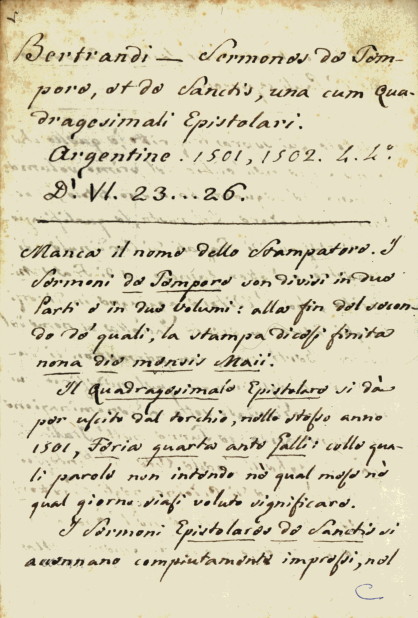 Bertrandi — Sermones de Tem-
pore, et de Sanctis, una cum Qua-
dragesimali Epistolari.
Argentine. 1501, 1502. 4. L.°
D.' VI. 23...26.
Manca il nome dello Stampatore. I
Sermoni de Tempore son divisi in due
Parti e in due Volumi: alla fin del secon-
do de' quali, la stampa dicesi finita
nona die mensis Maii.
Il Quadragesimale Epistolare si dà
per uscito dal torchio, nello stesso anno
1501, Feria quarta ante Galli: colle qua-
li parole non intendo nè qual mese nè
qual giorno siasi voluto significare.
I Sermoni Epistolares de Sanctis si
accennano compiutamente impressi, nel